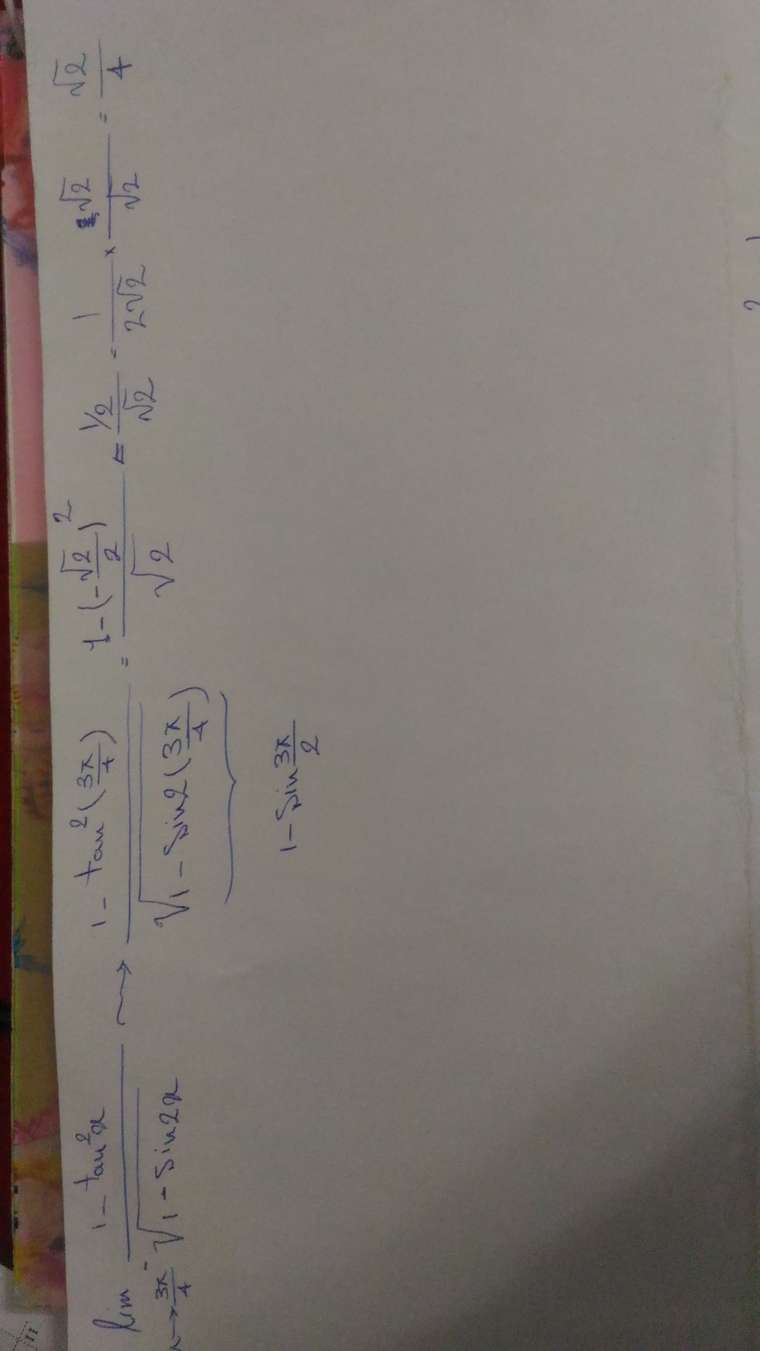 lim x→3π/4⁻ (1 - tan²x)/(√(1 - sin2x)) → (1 - tan²(3π/4))/(√(1 - sin2(3π/4))) = (1 - (-√2/2)²)/√2 = (1/2)/√2 = 1/(2√2) × √2/√2 = √2/4
1 - sin 3π/2